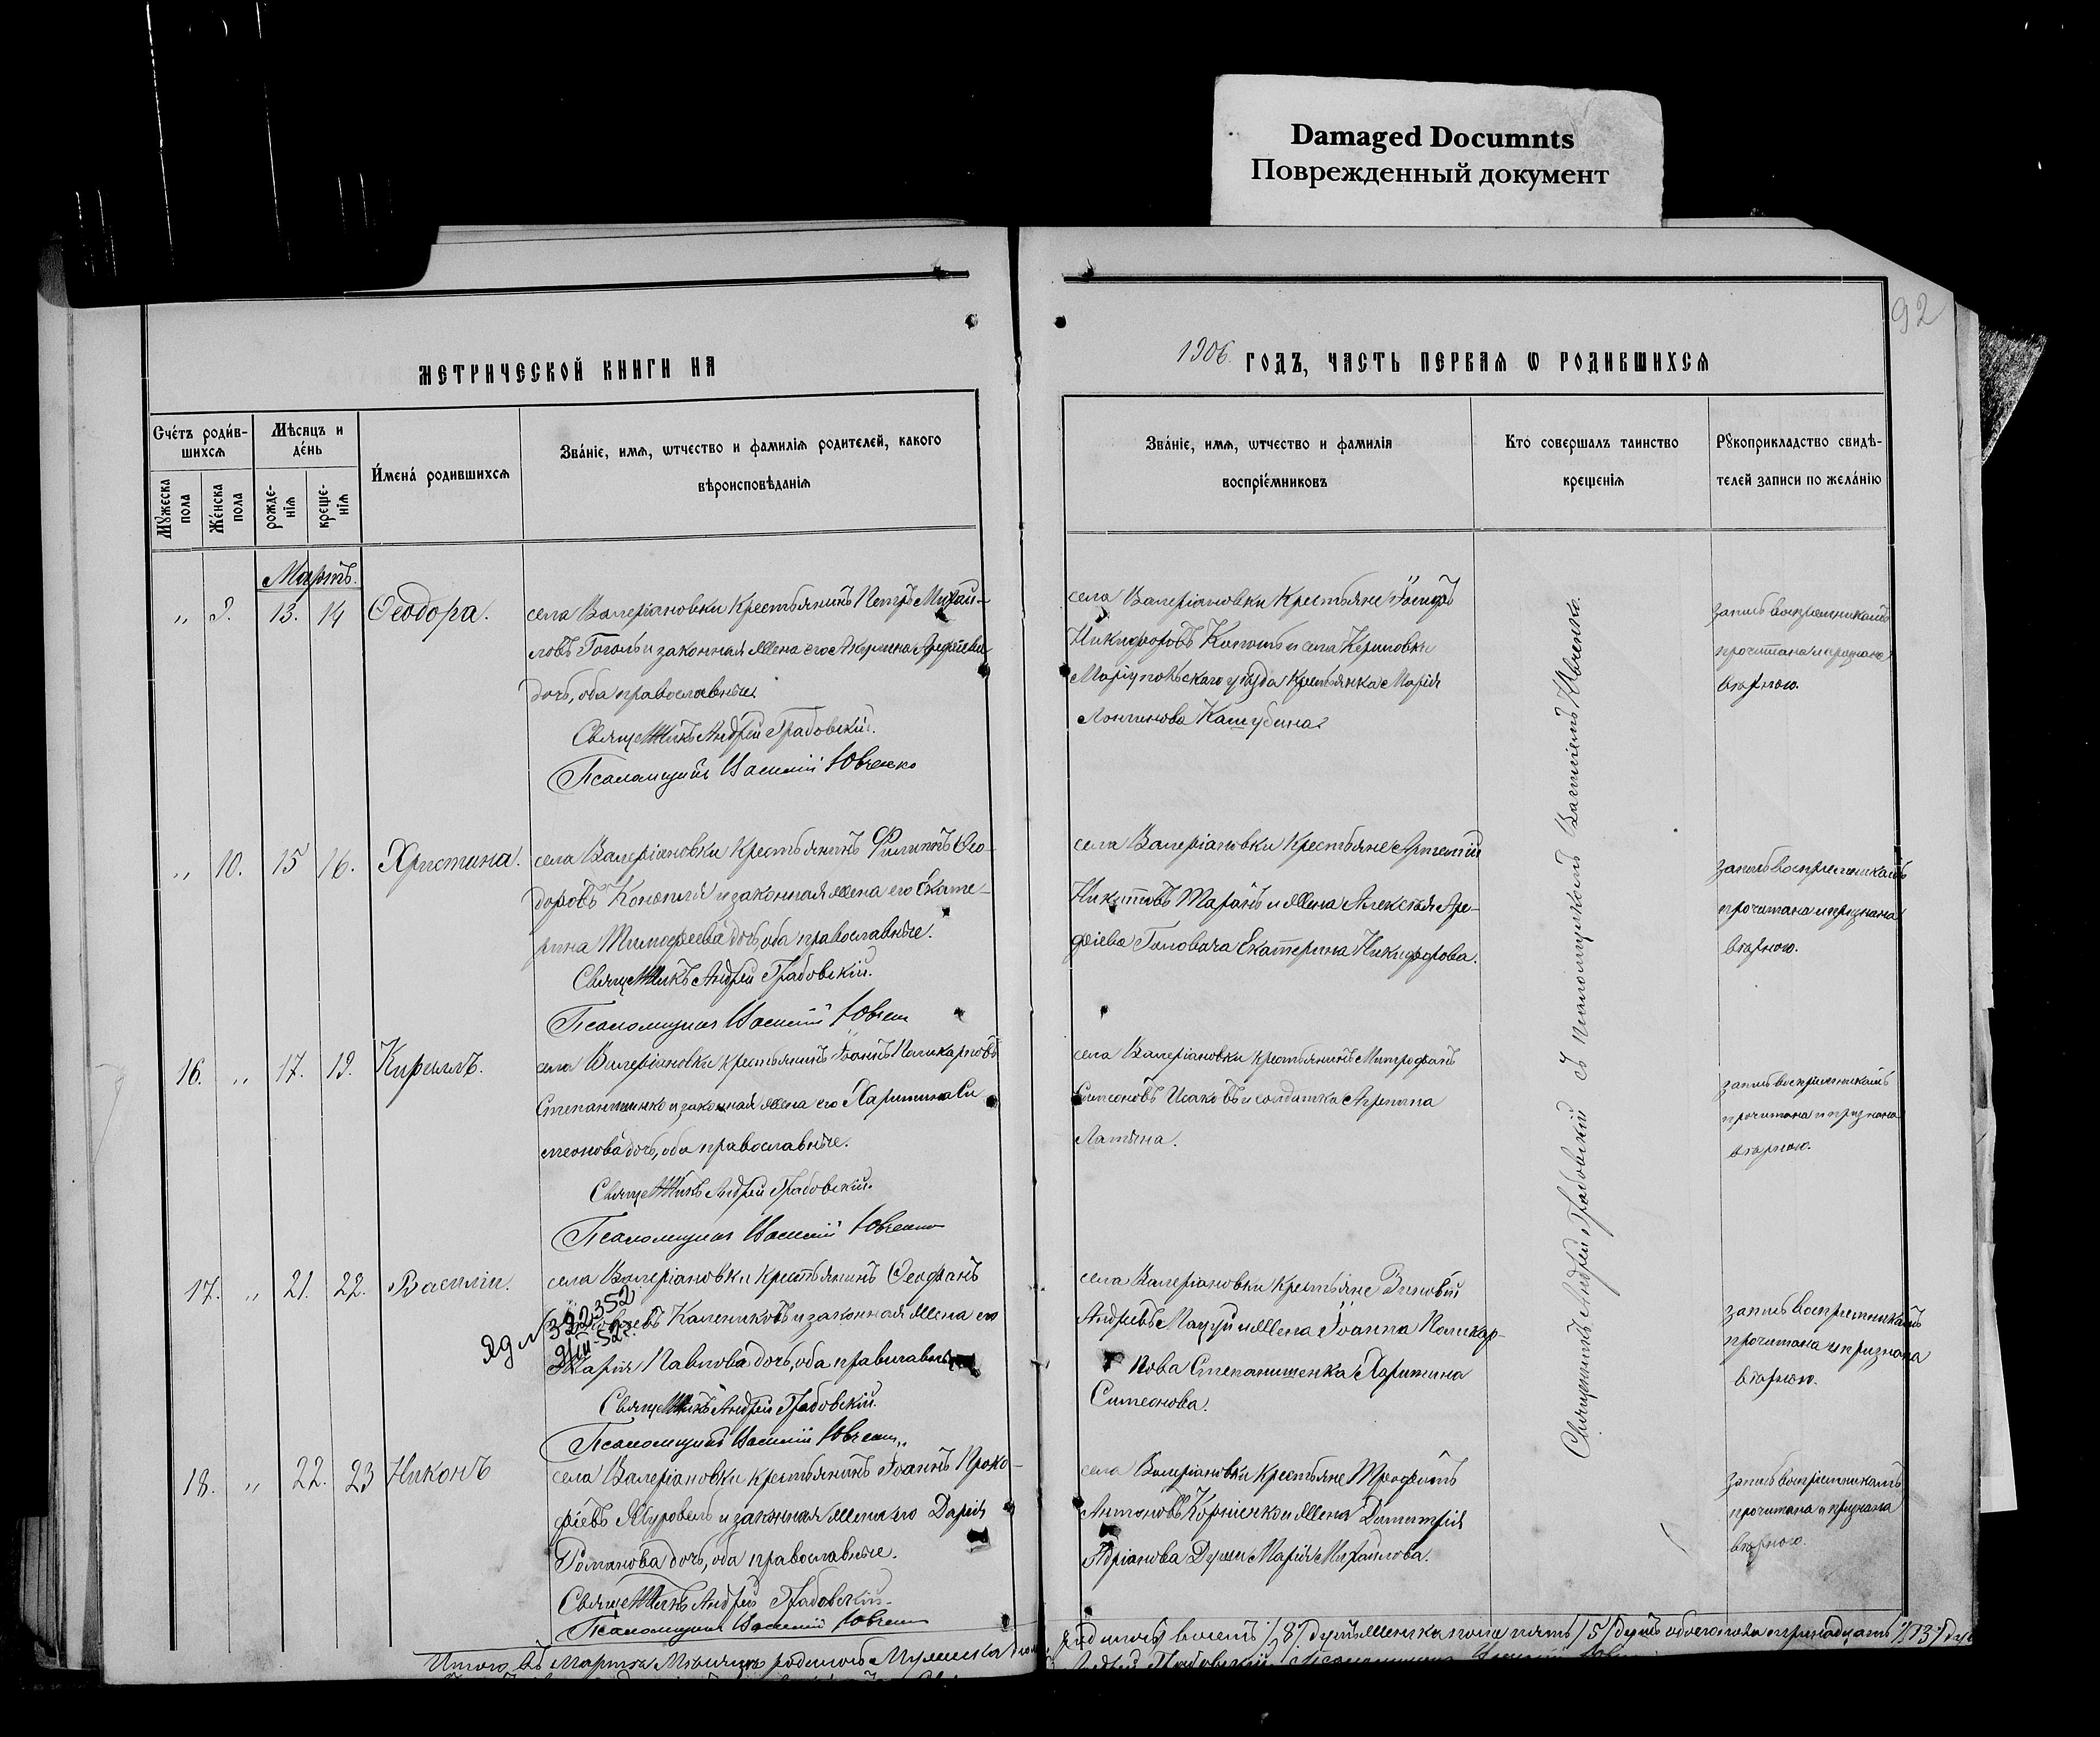 Damaged Documnts
Поврежденный документ
92
МЕТРИЧЕСКОЙ КНИГИ НА
1906. ГОДЪ, ЧАСТЬ ПЕРВАЯ Ѡ РОДИВШИХСЯ
Счétъ роди́в-
шихсѧ
Мꙋжеска пола
Жéнска пола
Мѣсяцъ и
дéнь
рожде-
нія
креще-
нія
И́мена́ родившихсѧ
Зва́нїе, имѧ, ѡтчество и фамилїѧ родителей, какого
вѣроисповѣданїѧ
Зва́нїе, имѧ, ѡтчество и фамилїѧ
воспрїе́мниковъ
Кто̀ совершалъ таинство
крещенїѧ
Рꙋкоприкладство свидѣ-
телей записи по жела́нїю
Мартъ.
„ 9. 13. 14 Ѳеодора.
села Валеріановки крестьянинъ Петръ Михай-
ловъ Гоголь и законная жена его Акулина
дочь, оба православные
Священникъ Андрей Грабовскій.
Псаломщикъ Василій Ювченко
села Валеріановки крестьяне Іосифъ
Никифоровъ и села
Маріупольскаго уѣзда крестьянка Марія
Лонгинова
запись воспріемникамъ
прочитана и признана
вѣрною.
„ 10. 15 16. Христина.
села Валеріановки крестьянинъ Филиппъ Ѳео-
доровъ и законная жена его Екате-
рина Тимофеева дочь, оба православные.
Священникъ Андрей Грабовскій.
Псаломщикъ Василій Ювченко
села Валеріановки крестьяне Артемій
Никитовъ Таранъ и жена Алексѣя Аре-
фіева Головача Екатерина Никифорова.
запись воспріемникамъ
прочитана и признана
вѣрною.
16. „ 17. 19. Кириллъ.
села Валеріановки крестьянинъ Іоаннъ Поликарповъ
Степанишенко и законная жена его Харитина Си
меонова дочь, оба православные.
Священникъ Андрей Грабовскій.
Псаломщикъ Василій Ювченко
села Валеріановки крестьянинъ Митрофанъ
Симеоновъ Исаковъ и солдатка Агрипина
Латына.
запись воспріемникамъ
прочитана и признана
вѣрною.
17. „ 21. 22. Василій.
села Валеріановки крестьянинъ Ѳеофанъ
Калениковъ и законная жена его
Марія Павлова дочь, оба православные
322352
Священникъ Андрей Грабовскій.
Псаломщикъ Василій Ювченко
села Валеріановки крестьяне Зиновій
Андреевъ и жена Іоанна Поликар-
пова Степанишенка Харитина
Симеонова.
запись воспріемникамъ
прочитана и признана
вѣрною.
18. „ 22. 23 Никонъ
села Валеріановки крестьянинъ Іоаннъ Проко-
фіевъ Журовель и законная жена его Дарія
Романова дочь, оба православные.
Священникъ Андрей Грабовскій.
Псаломщикъ Василій Ювченко
села Валеріановки крестьяне Трофимъ
Антоновъ Корніенко и жена Димитрія
Адріанова Марія Михайлова.
запись воспріемникамъ
прочитана и признана
вѣрною.
Священникъ Андрей Грабовскій съ псаломщикомъ Василіемъ Ювченко.
Итого въ Мартѣ Мѣсяцѣ родилось Мужеска пола
родилось восемь /8/ душъ Женска пола пять /5/ душъ обоего пола тринадцать /13/